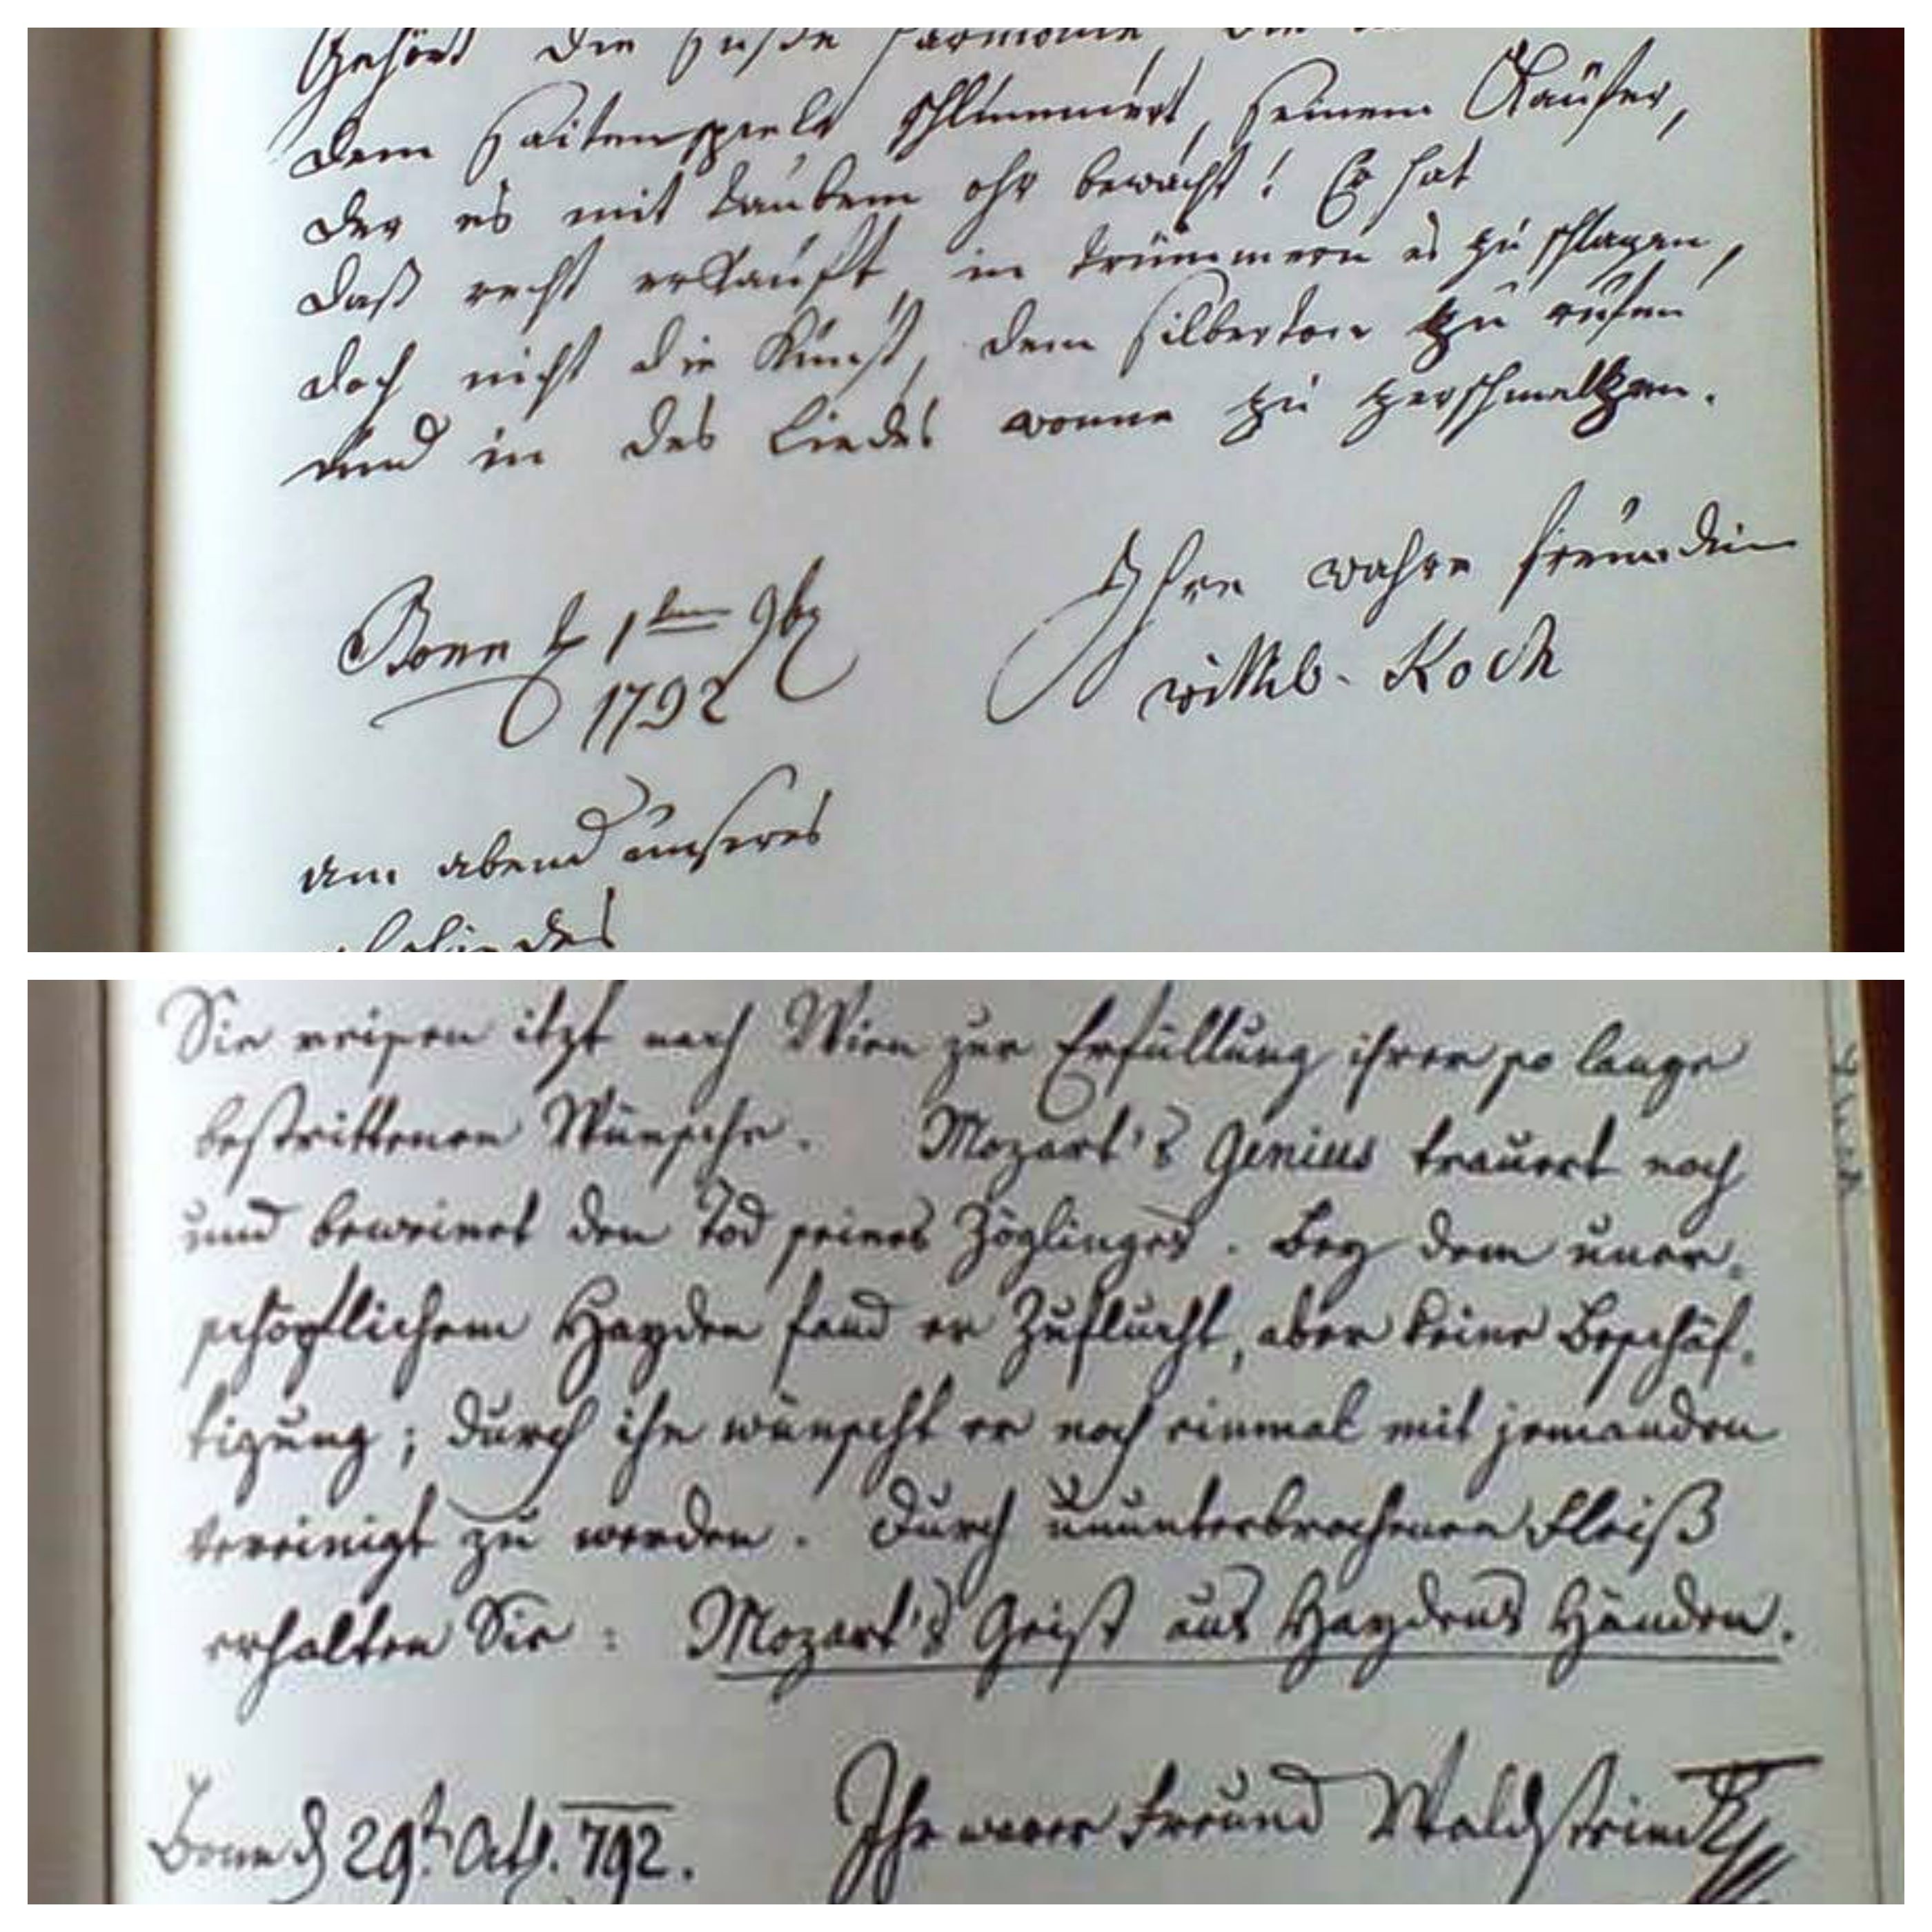 Gehört die süße Harmonie, die in
dem Saitenspiele schlummert, seinem Käufer,
der es mit taubem ohr bewacht! Er hat
daß recht erkauft in trümmern es zu schlagen,
doch nicht die Kunst, dem silberton zu rufen
und in des Liedes wonne zu zerschmeltzen.
Bonn d 1ten 9br
1792
Ihre wahre freundin
wittib. Koch
am abend unseres
abschiedes
Sie reisen itzt nach Wien zur Erfüllung ihrer so lange
bestrittenen Wünsche. Mozart's Genius trauert noch
und beweinet den Tod seines Zöglinges. Bey dem uner-
schöpflichem Hayden fand er Zuflucht, aber keine Beschäf-
tigung; durch ihn wünscht er noch einmal mit jemanden
vereinigt zu werden. Durch ununterbrochenen Fleiß
erhalten Sie: Mozart's Geist aus Haydens Händen.
Bonn d 29t. Oct. 792.
Ihr warer Freund Waldstein